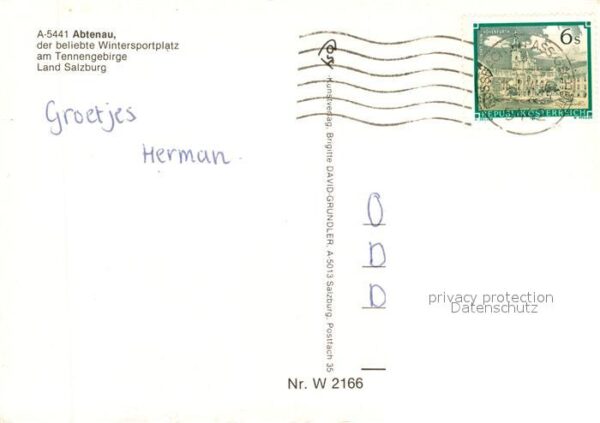 A-5441 Abtenau,
der beliebte Wintersportplatz
am Tennengebirge
Land Salzburg
Groetjes
Herman.
Kunstverlag, Brigitte DAVID-GRÜNDLER, A-5013 Salzburg, Postfach 35
6 s
REPUBLIK ÖSTERREICH
O
D
D
privacy protection
Datenschutz
Nr. W 2166